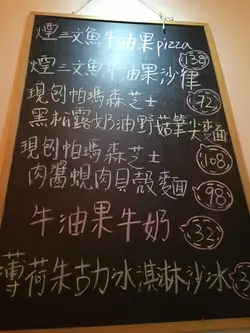 煙三文魚牛油果pizza
138
煙三文魚牛油果沙律
72
現刨帕瑪森芝士
黑松露奶油野菇筆尖麵
108
現刨帕瑪森芝士
肉醬蜆肉貝殼麵
98
牛油果牛奶
32
薄荷朱古力冰淇淋沙冰